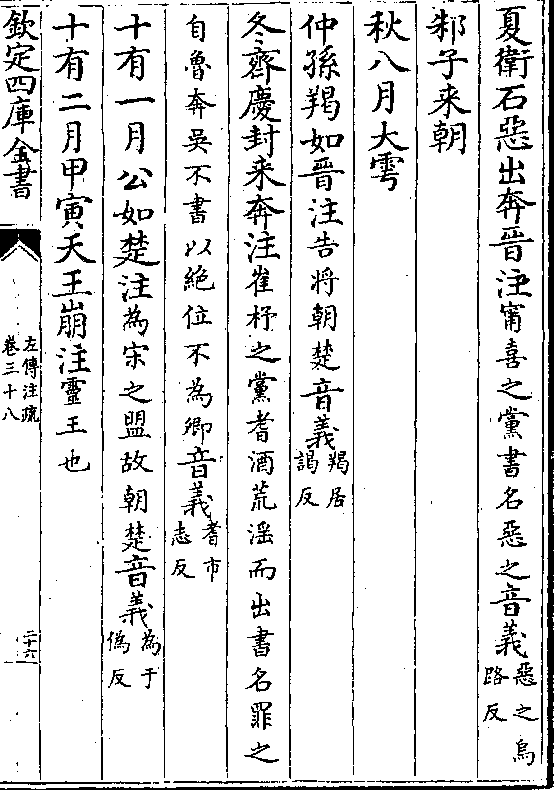 夏衛石惡出奔晉注甯喜之黨書名惡之音義惡之烏路反
邾子来朝
秋八月大雩
仲孫羯如晉注告将朝楚音義羯居謁反
冬齊慶封来奔注崔杼之黨耆酒荒淫而出書名罪之
自魯奔吴不書以絶位不為卿音義耆市志反
十有一月公如楚注為宋之盟故朝楚音義為于偽反
十有二月甲寅天王崩注靈王也
欽定四庫全書
左傳注疏
卷三十八
二十六